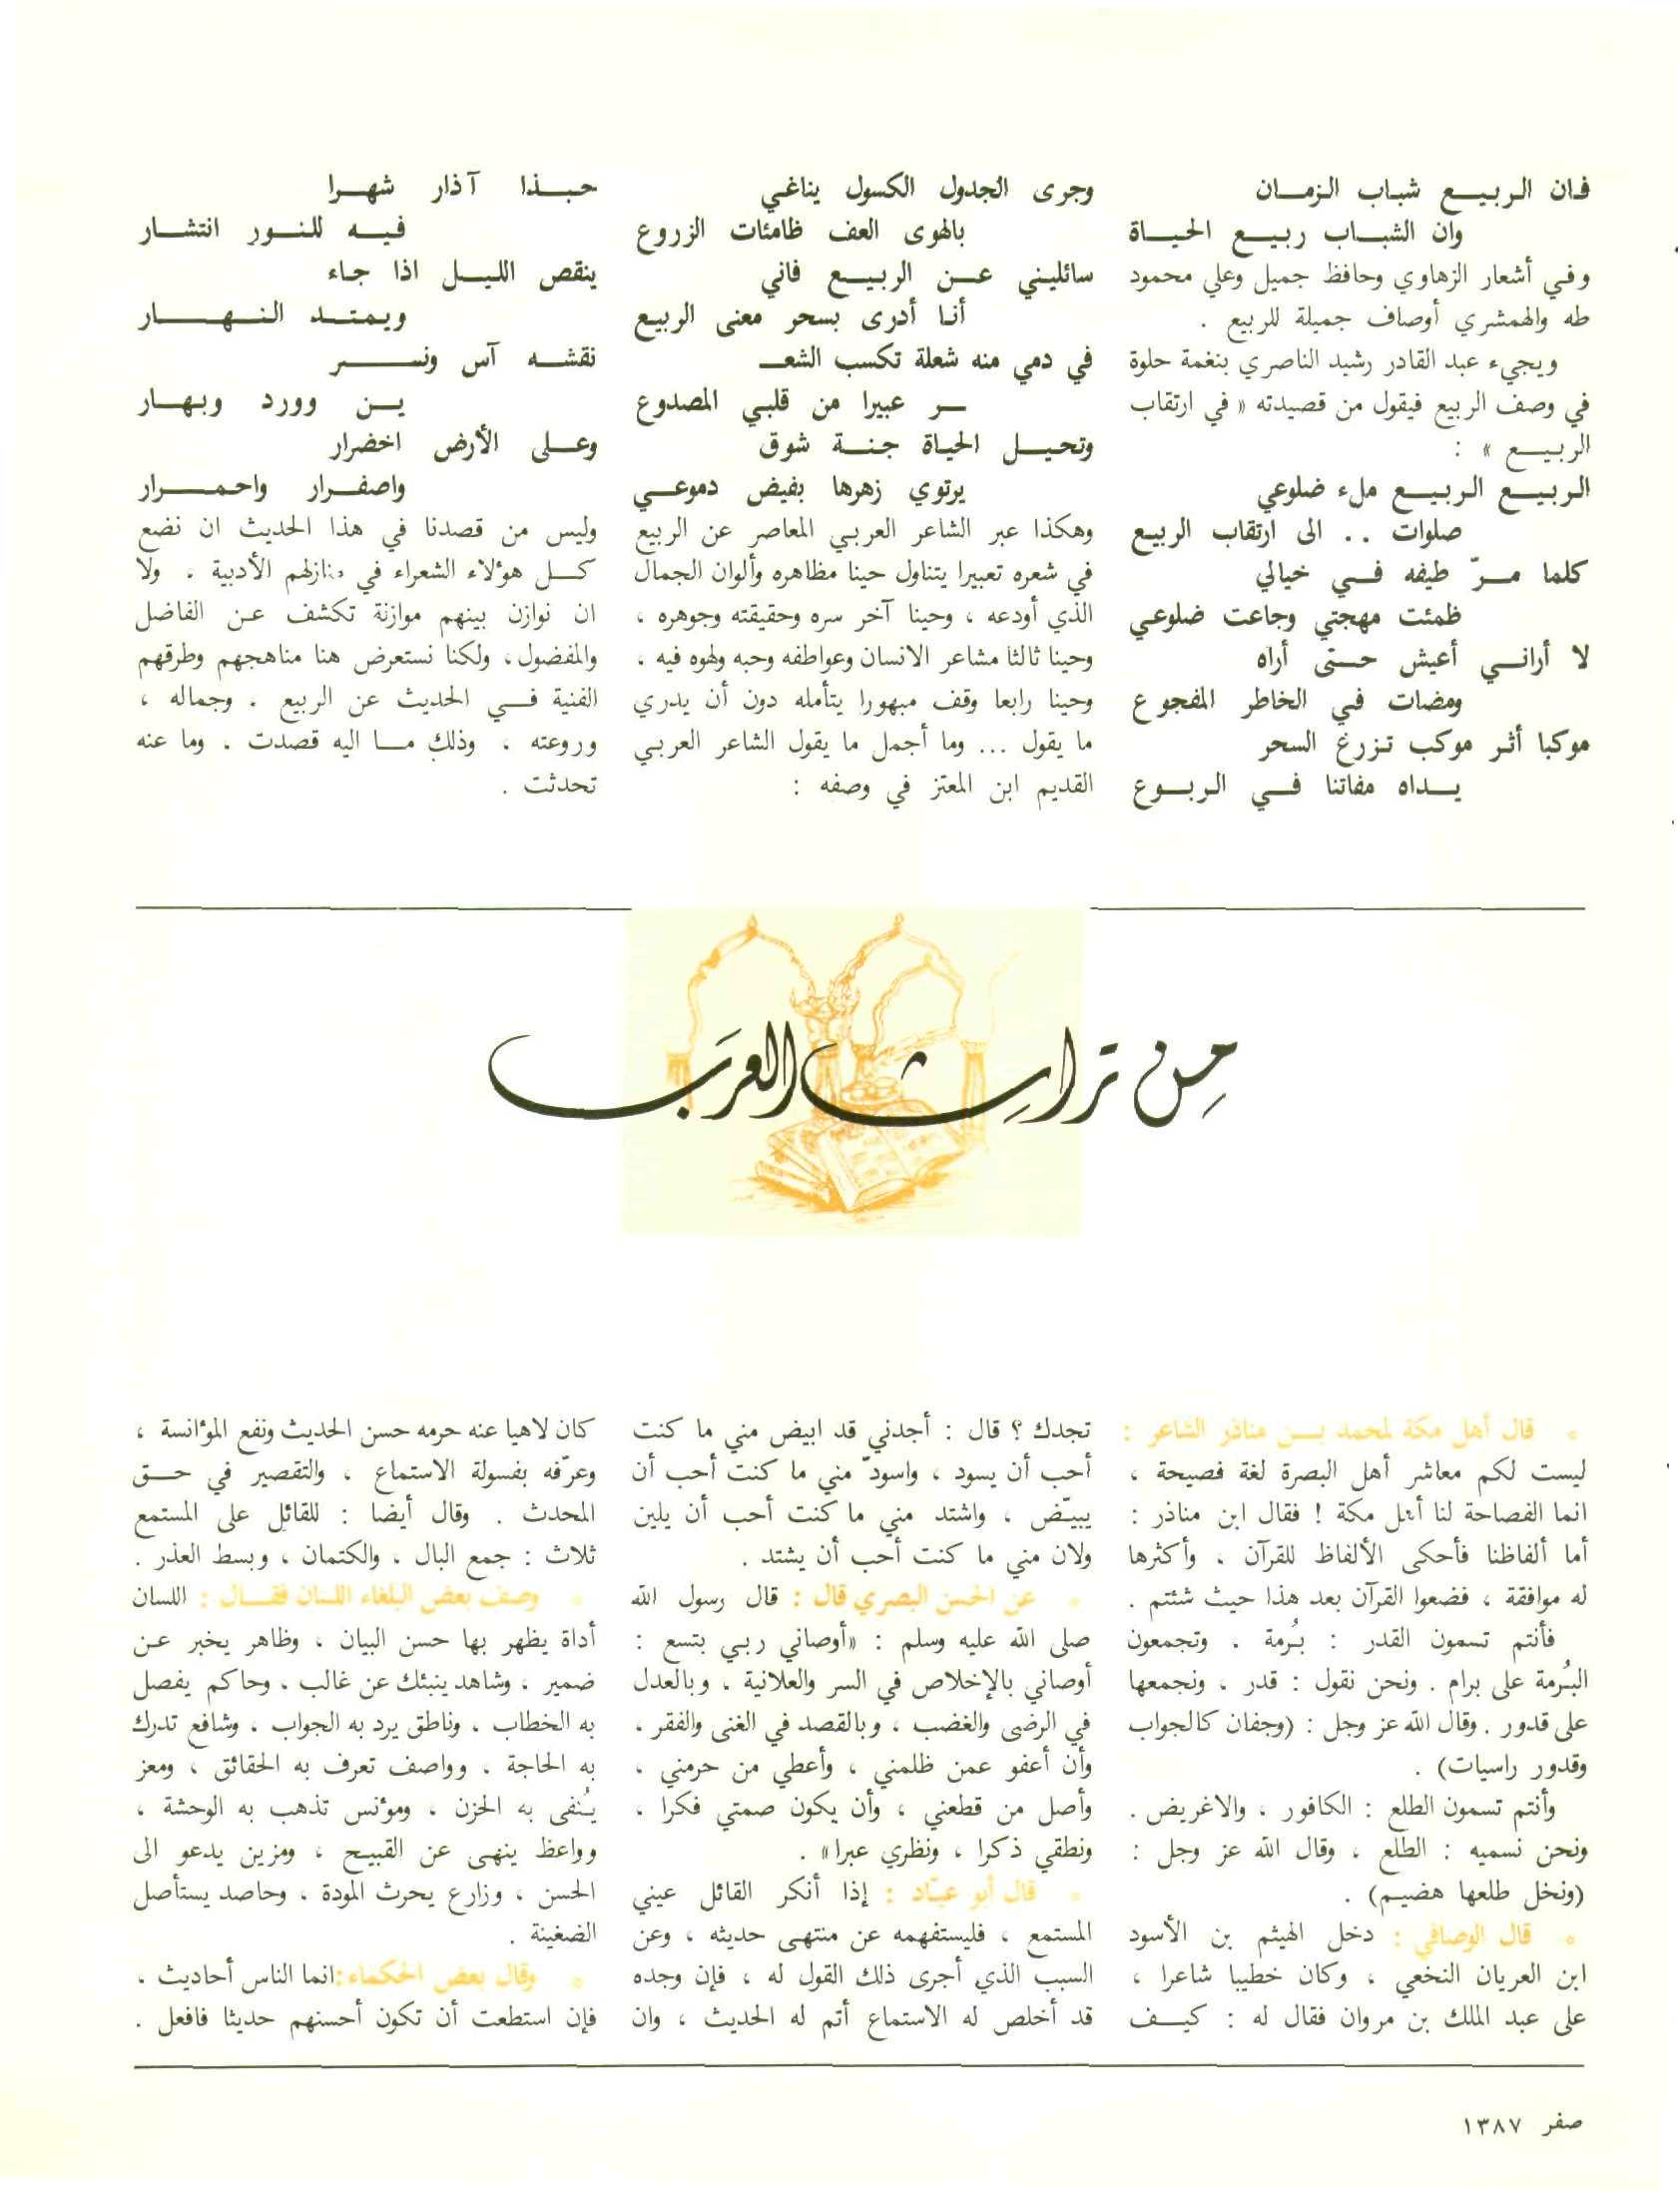 فان الربيع شباب الزمان
وان الشباب ربيع الحياة
وفي أشعار الزهاوي وحافظ جميل وعلي محمود
طه والهمشري أوصاف جميلة للربيع .
ويجيء عبد القادر رشيد الناصري بنغمة حلوة
في وصف الربيع فيقول من قصيدته « في ارتقاب
الربيع » :
الربيع الربيع ملء ضلوعي
صلوات .. الى ارتقاب الربيع
كلما مرّ طيفه في خيالي
ظمئت مهجتي وجاعت ضلوعي
لا أراني أعيش حتى أراه
ومضات في الخاطر المفجوع
موكبا أثر موكب تزرع السحر
يداه مفاتنا في الربوع
وجرى الجدول الكسول يناغي
بالهوى العف ظامئات الزروع
سائليني عن الربيع فاني
أنا أدرى بسحر معنى الربيع
في دمي منه شعلة تكسب الشعـ
ـر عبيرا من قلبي المصدوع
وتحيل الحياة جنة شوق
يرتوي زهرها بفيض دموعي
وهكذا عبر الشاعر العربي المعاصر عن الربيع
في شعره تعبيرا يتناول حينا مظاهره وألوان الجمال
الذي أودعه ، وحينا آخر سره وحقيقته وجوهره ،
وحينا ثالثا مشاعر الانسان وعواطفه وحبه ولهوه فيه ،
وحينا رابعا وقف مبهورا يتأمله دون أن يدري
ما يقول ... وما أجمل ما يقول الشاعر العربي
القديم ابن المعتز في وصفه :
حبذا آذار شهرا
فيه للنور انتشار
ينقص الليل اذا جاء
ويمتد النهار
نقشه آس ونسر
ين وورد وبهار
وعلى الأرض اخضرار
واصفرار واحمرار
وليس من قصدنا في هذا الحديث ان نضع
كل هؤلاء الشعراء في منازلهم الأدبية ، ولا
ان نوازن بينهم موازنة تكشف عن الفاضل
والمفضول، ولكنا نستعرض هنا مناهجهم وطرقهم
الفنية في الحديث عن الربيع ، وجماله ،
وروعته ، وذلك ما اليه قصدت ، وما عنه
تحدثت .
مِن تراثِ العرَب
* قال أهل مكة لمحمد بن مناذر الشاعر :
ليست لكم معاشر أهل البصرة لغة فصيحة ،
انما الفصاحة لنا أهل مكة ! فقال ابن مناذر :
أما ألفاظنا فأحكى الألفاظ للقرآن ، وأكثرها
له موافقة ، فضعوا القرآن بعد هذا حيث شئتم .
فأنتم تسمون القدر : بُرمة ، وتجمعون
البُرمة على برام . ونحن نقول : قدر ، ونجمعها
على قدور . وقال الله عز وجل : (وجفان كالجواب
وقدور راسيات) .
وأنتم تسمون الطلع : الكافور ، والاغريض .
ونحن نسميه : الطلع ، وقال الله عز وجل :
(ونخل طلعها هضيم) .
* قال الوصافي : دخل الهيثم بن الأسود
ابن العريان النخعي ، وكان خطيبا شاعرا ،
على عبد الملك بن مروان فقال له : كيف
تجدك ؟ قال : أجدني قد ابيض مني ما كنت
أحب أن يسود ، واسودّ مني ما كنت أحب أن
يبيّض ، واشتد مني ما كنت أحب أن يلين
ولان مني ما كنت أحب أن يشتد .
* عن الحسن البصري قال : قال رسول الله
صلى الله عليه وسلم : «أوصاني ربي بتسع :
أوصاني بالإخلاص في السر والعلانية ، وبالعدل
في الرضى والغضب ، وبالقصد في الغنى والفقر ،
وأن أعفو عمن ظلمني ، وأعطي من حرمني ،
وأصل من قطعني ، وأن يكون صمتي فكرا ،
ونطقي ذكرا ، ونظري عبرا» .
* قال أبو عبّاد : إذا أنكر القائل عيني
المستمع ، فليستفهمه عن منتهى حديثه ، وعن
السبب الذي أجرى ذلك القول له ، فإن وجده
قد أخلص له الاستماع أتم له الحديث ، وان
كان لاهيا عنه حرمه حسن الحديث ونفع المؤانسة ،
وعرّفه بفسولة الاستماع ، والتقصير في حق
المحدث . وقال أيضا : للقائل على المستمع
ثلاث : جمع البال ، والكتمان ، وبسط العذر .
* وصف بعض البلغاء اللسان فقال : اللسان
أداة يظهر بها حسن البيان ، وظاهر يخبر عن
ضمير ، وشاهد ينبئك عن غالب ، وحاكم يفصل
به الخطاب ، وناطق يرد به الجواب ، وشافع تدرك
به الحاجة ، وواصف تعرف به الحقائق ، ومعز
يُنفى به الحزن ، ومؤنس تذهب به الوحشة ،
وواعظ ينهى عن القبيح ، ومزين يدعو الى
الحسن ، وزارع يحرث المودة ، وحاصد يستأصل
الضغينة .
* وقال بعض الحكماء : انما الناس أحاديث ،
فإن استطعت أن تكون أحسنهم حديثا فافعل .
صفر ١٣٨٧